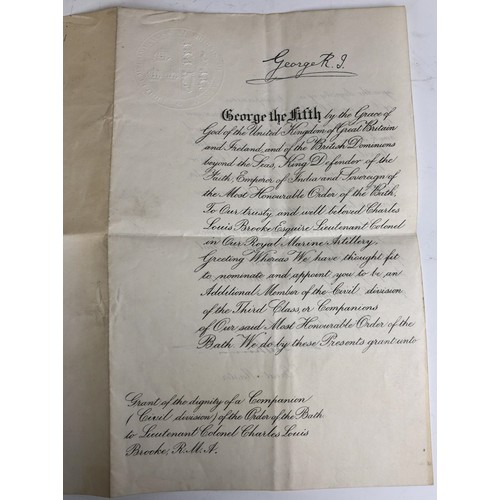 George R. I.
George the Fifth by the Grace of
God of the United Kingdom of Great Britain
and Ireland, and of the British Dominions
beyond the Seas, King Defender of the
Faith, Emperor of India and Sovereign of
the Most Honourable Order of the Bath,
To Our trusty and well beloved Charles
Louis Brooke Esquire Lieutenant Colonel
in Our Royal Marine Artillery,
Greeting Whereas We have thought fit
to nominate and appoint you to be an
Additional Member of the Civil division
of the Third Class, or Companions
of Our said Most Honourable Order of the
Bath We do by these Presents grant unto
Grant of the dignity of a Companion
(Civil division) of the Order of the Bath
to Lieutenant Colonel Charles Louis
Brooke, R.M.A.